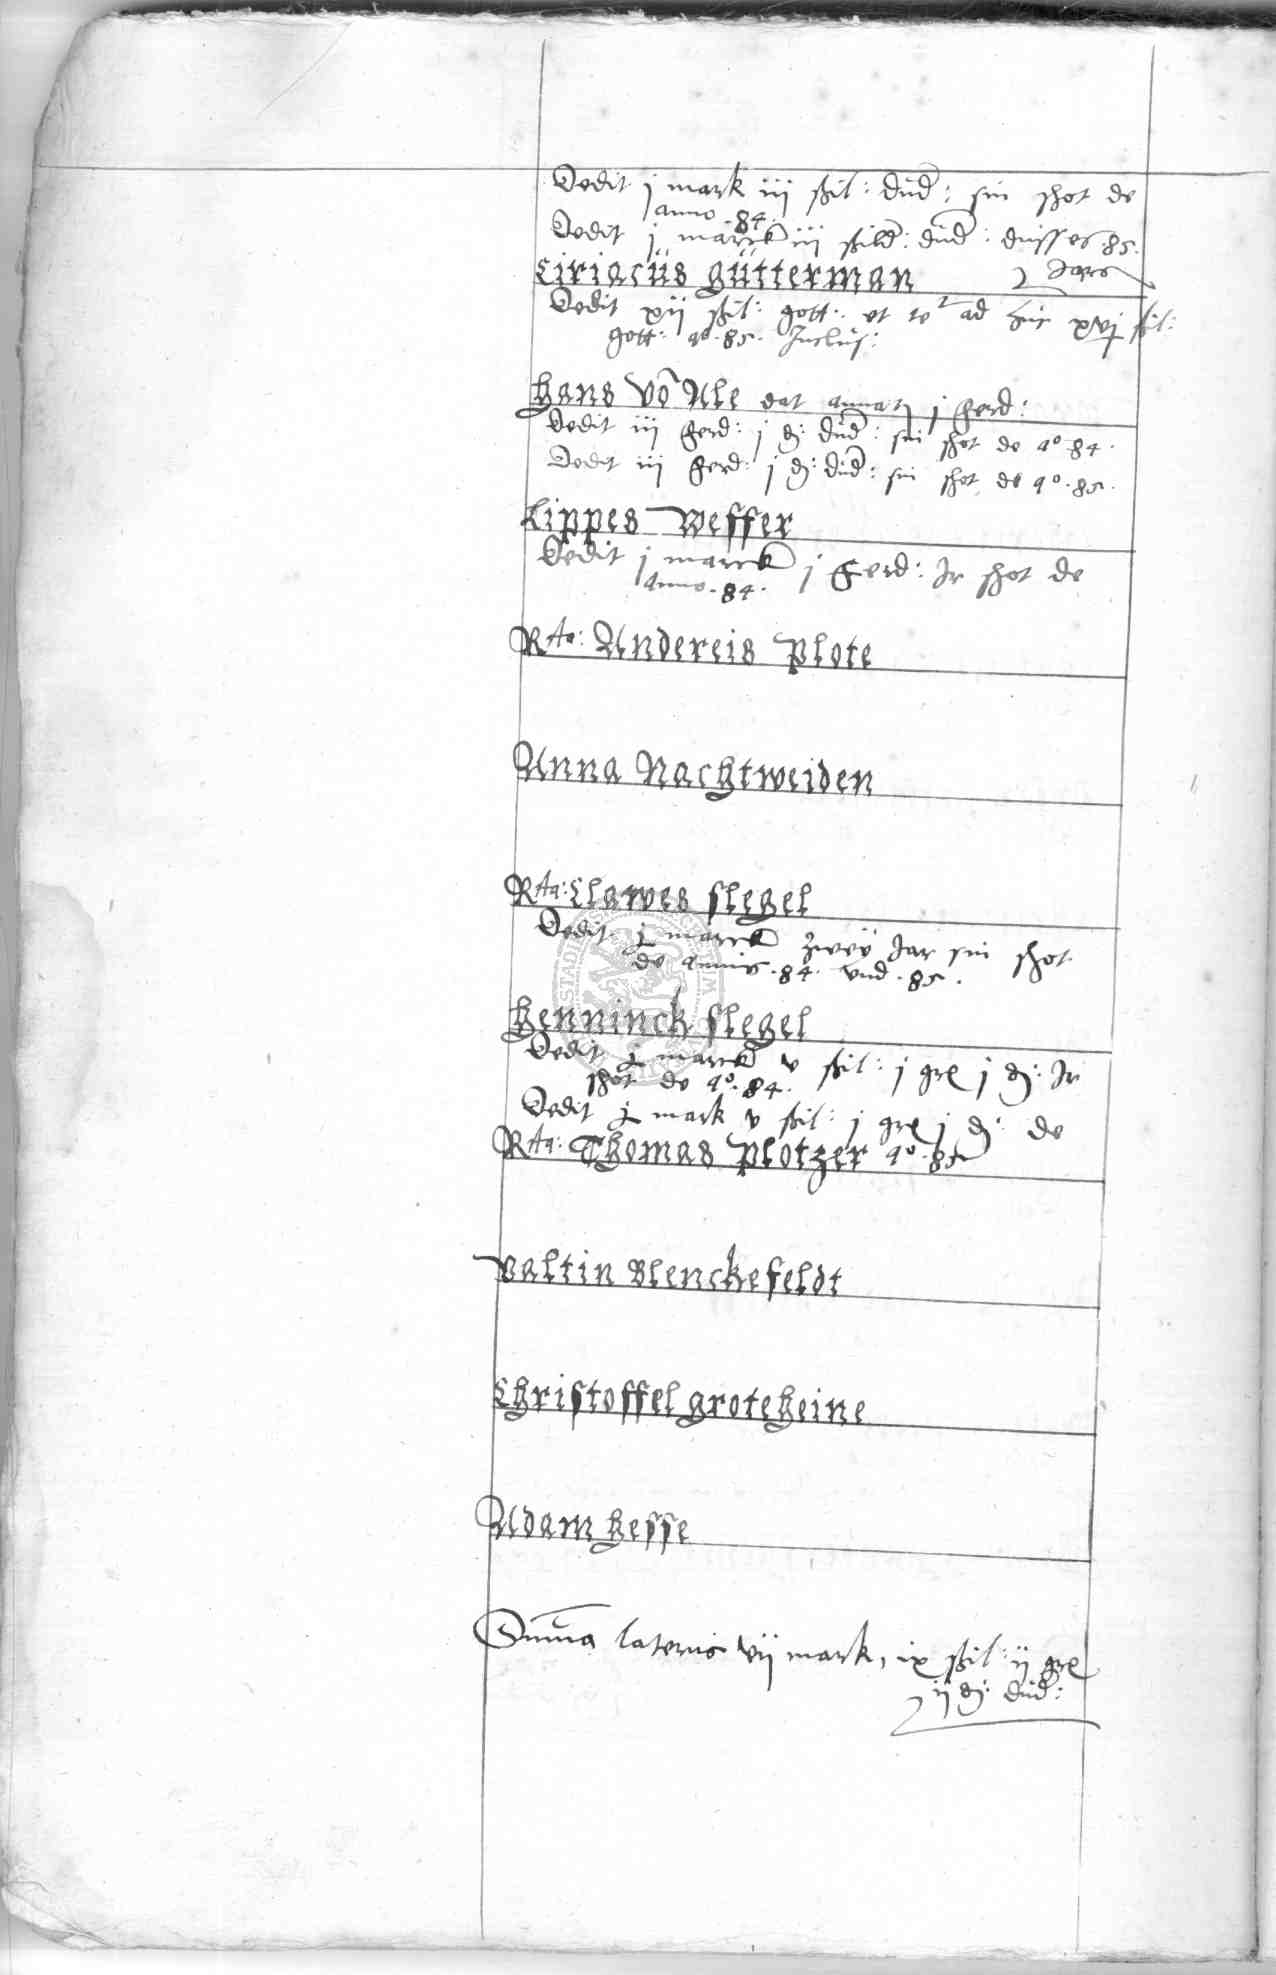 Dedit j mark iij ßil: Dud: sin schot de
anno .84.
Dedit j marck iij ßild: dud: disses .85.
Jars
Ciriacus gütterman
Dedit xij ßil: gott: ut ad xvj ßil:
gott: ao .85. Inclus:
Hans vo Ale dat j ferd:
Dedit iij ferd: j d: dud: sin schot de ao .84.
Dedit iij ferd: j d: dud: sin schot de ao .85.
Lippes Weffer
Dedit j marck j Ferd: Ir schot de
Anno .84.
Rta: Andereis Plote
Anna Nachtweiden
Rta: Clawes slegel
Dedit j marck zwey Jar sin schot
de annis .84. vnd .85.
STADT
Henninck slegel
Dedit j marck v ßil: j gr j d: Ir
schot de ao .84.
Dedit j mark v ßil: j gr j d: de
ao .85
Rta: Thomas Plotzer
Valtin Blenckefeldt
Christoffel groteheine
Adam hesse
Suma lateris vij mark, ix ßil: ij gr
ij d: dud: